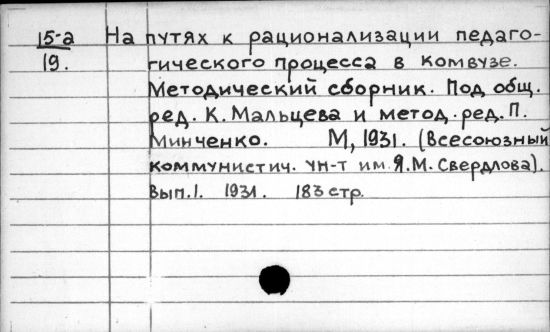 15-а На путях к рационализации педаго-
19. гического процесса в комвузе.
Методический сборник. Под общ.
ред. К. Мальцева и метод. ред. П.
Минченко. М, 1931. (Всесоюзный
коммунистич. ун-т им. Я.М. Свердлова).
Вып. 1. 1931. 183 стр.